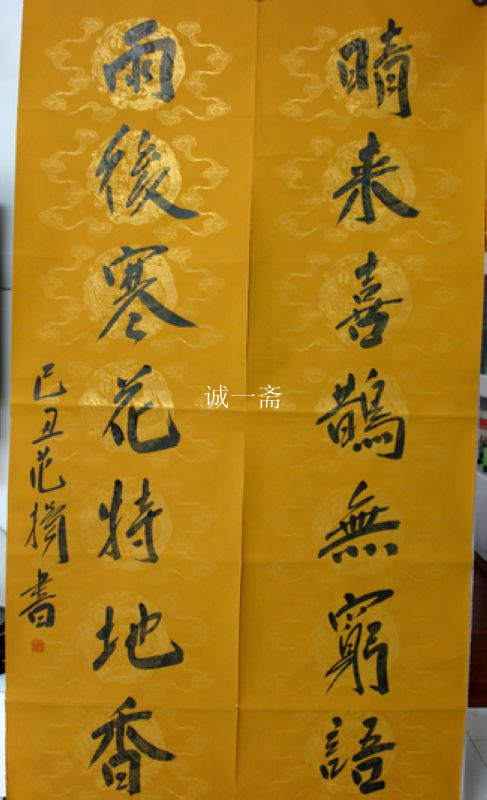 晴来喜鵲無窮語
雨後寒花特地香
己丑范揚書
诚一斋